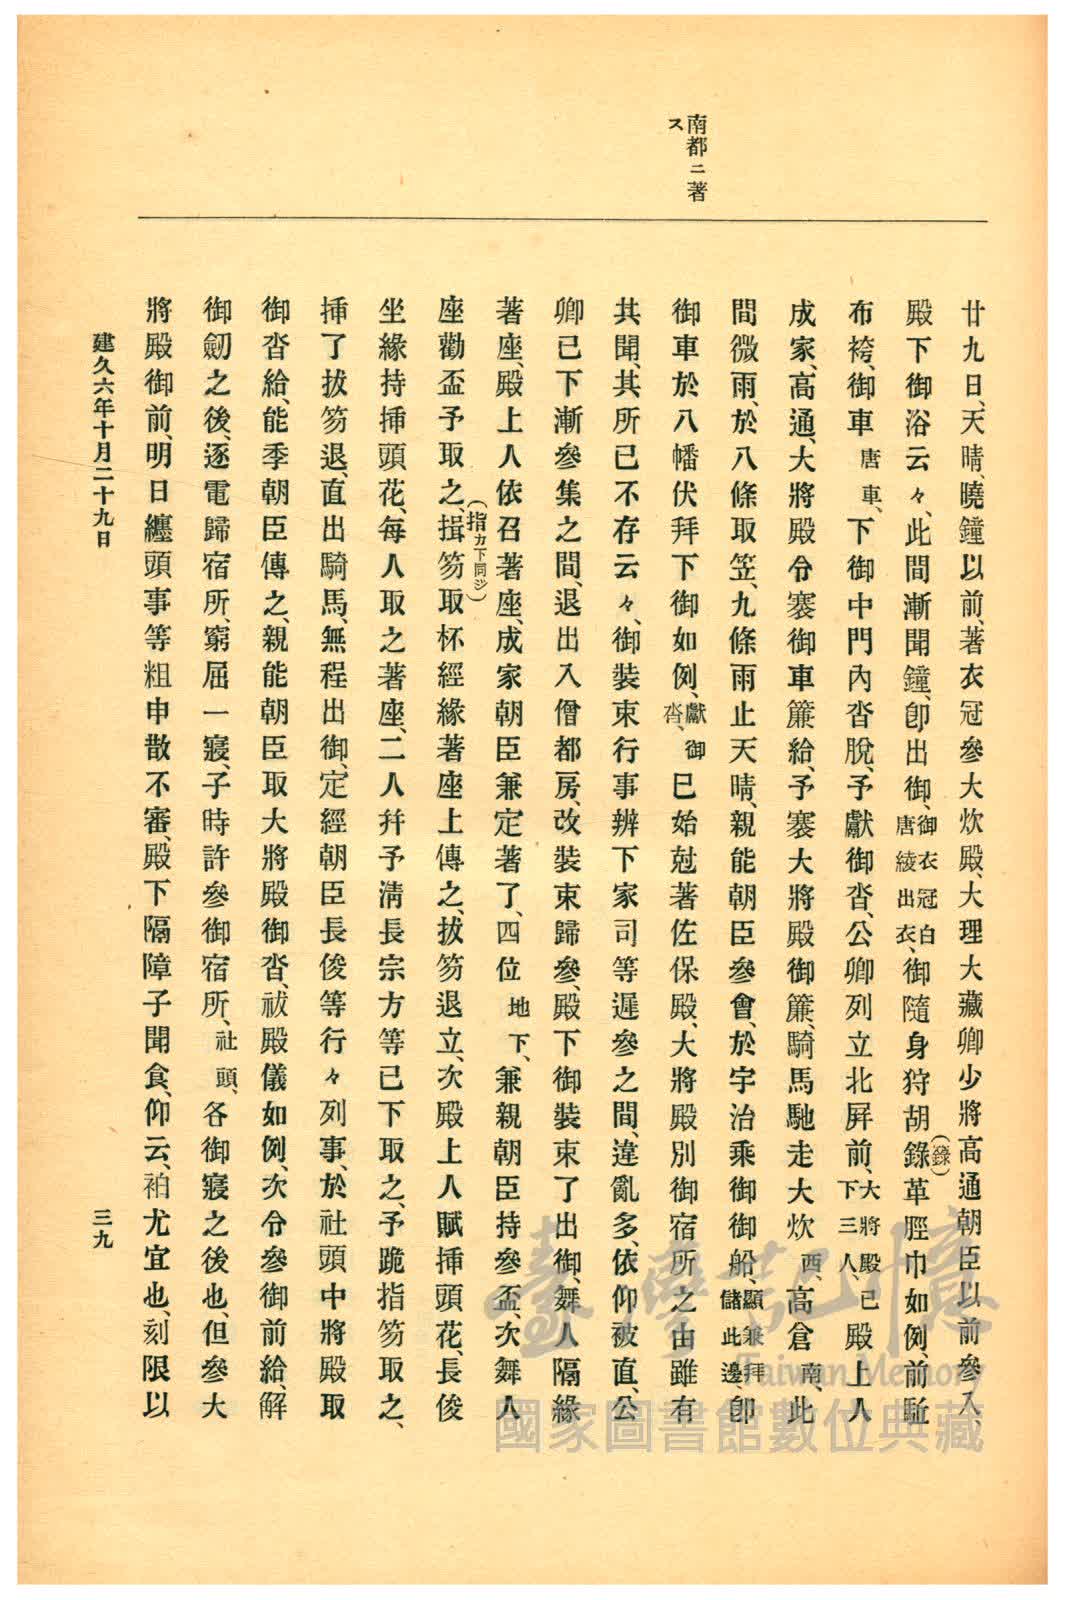 南都ニ著
ス
廿九日、天晴、曉鐘以前、著衣冠參大炊殿、大理大藏卿少將高通朝臣以前參入、
殿下御浴云々、此間漸聞鐘、卽出御、御衣冠白唐綾出衣、御隨身狩胡錄(籙)革脛巾如例、前駈
布袴、御車唐車、下御中門內沓脫、予獻御沓、公卿列立北屛前、大將殿已下三人、殿上人
成家、高通、大將殿令褰御車簾給、予褰大將殿御簾、騎馬馳走大炊西、高倉南、此
間微雨、於八條取笠、九條雨止天晴、親能朝臣參會、於宇治乘御御船、顯兼拜儲此邊、卽
御車於八幡伏拜下御如例、獻御沓、巳始尅著佐保殿、大將殿別御宿所之由雖有
其聞、其所已不存云々、御裝束行事辨下家司等遲參之間、違亂多、依仰被直、公
卿已下漸參集之間、退出入僧都房、改裝束歸參、殿下御裝束了出御、舞人隔緣
著座、殿上人依召著座、成家朝臣兼定著了、四位地下、兼親朝臣持參盃、次舞人
座勸盃予取之、揖(指カ下同ジ)笏取杯經緣著座上傳之、拔笏退立、次殿上人賦揷頭花、長俊
坐緣持揷頭花、每人取之著座、二人幷予淸長宗方等已下取之、予跪指笏取之、
揷了拔笏退、直出騎馬、無程出御、定經朝臣長俊等行々列事、於社頭中將殿取
御沓給、能季朝臣傳之、親能朝臣取大將殿御沓、祓殿儀如例、次令參御前給、解
御劒之後、逐電歸宿所、窮屈一寢、子時許參御宿所、社頭、各御寢之後也、但參大
將殿御前、明日纏頭事等粗申散不審、殿下隔障子聞食、仰云、袙尤宜也、刻限以
建久六年十月二十九日
三九
臺灣記憶
Taiwan Memory
國家圖書館數位典藏